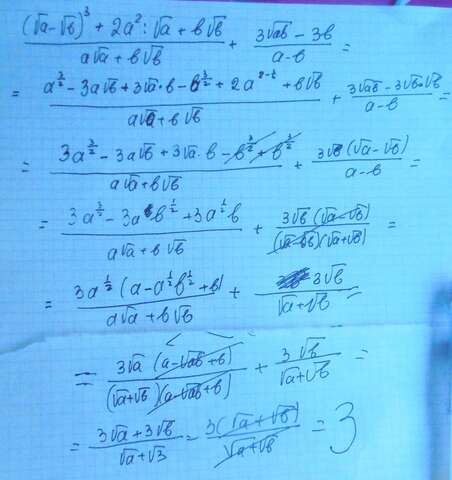 ((√a-√b)³ + 2a² : √a + b√b)/(a√a + b√b) + (3√ab - 3b)/(a-b) =
= (a^(3/2) - 3a√b + 3√a·b - b^(3/2) + 2a^(2-½) + b√b)/(a√a + b√b) + (3√ab - 3√b·√b)/(a-b) =
= (3a^(3/2) - 3a√b + 3√a·b - b^(3/2) + b^(3/2))/(a√a + b√b) + (3√b(√a - √b))/(a-b) =
= (3a^(3/2) - 3ab^(1/2) + 3a^(1/2)b)/(a√a + b√b) + (3√b(√a-√b))/((√a-√b)(√a+√b)) =
= (3a^(1/2)(a - a^(1/2)b^(1/2) + b))/(a√a + b√b) + 3√b/(√a+√b) =
= (3√a(a-√ab+b))/((√a+√b)(a-√ab+b)) + 3√b/(√a+√b) =
= (3√a + 3√b)/(√a+√3) = (3(√a+√b))/(√a+√b) = 3